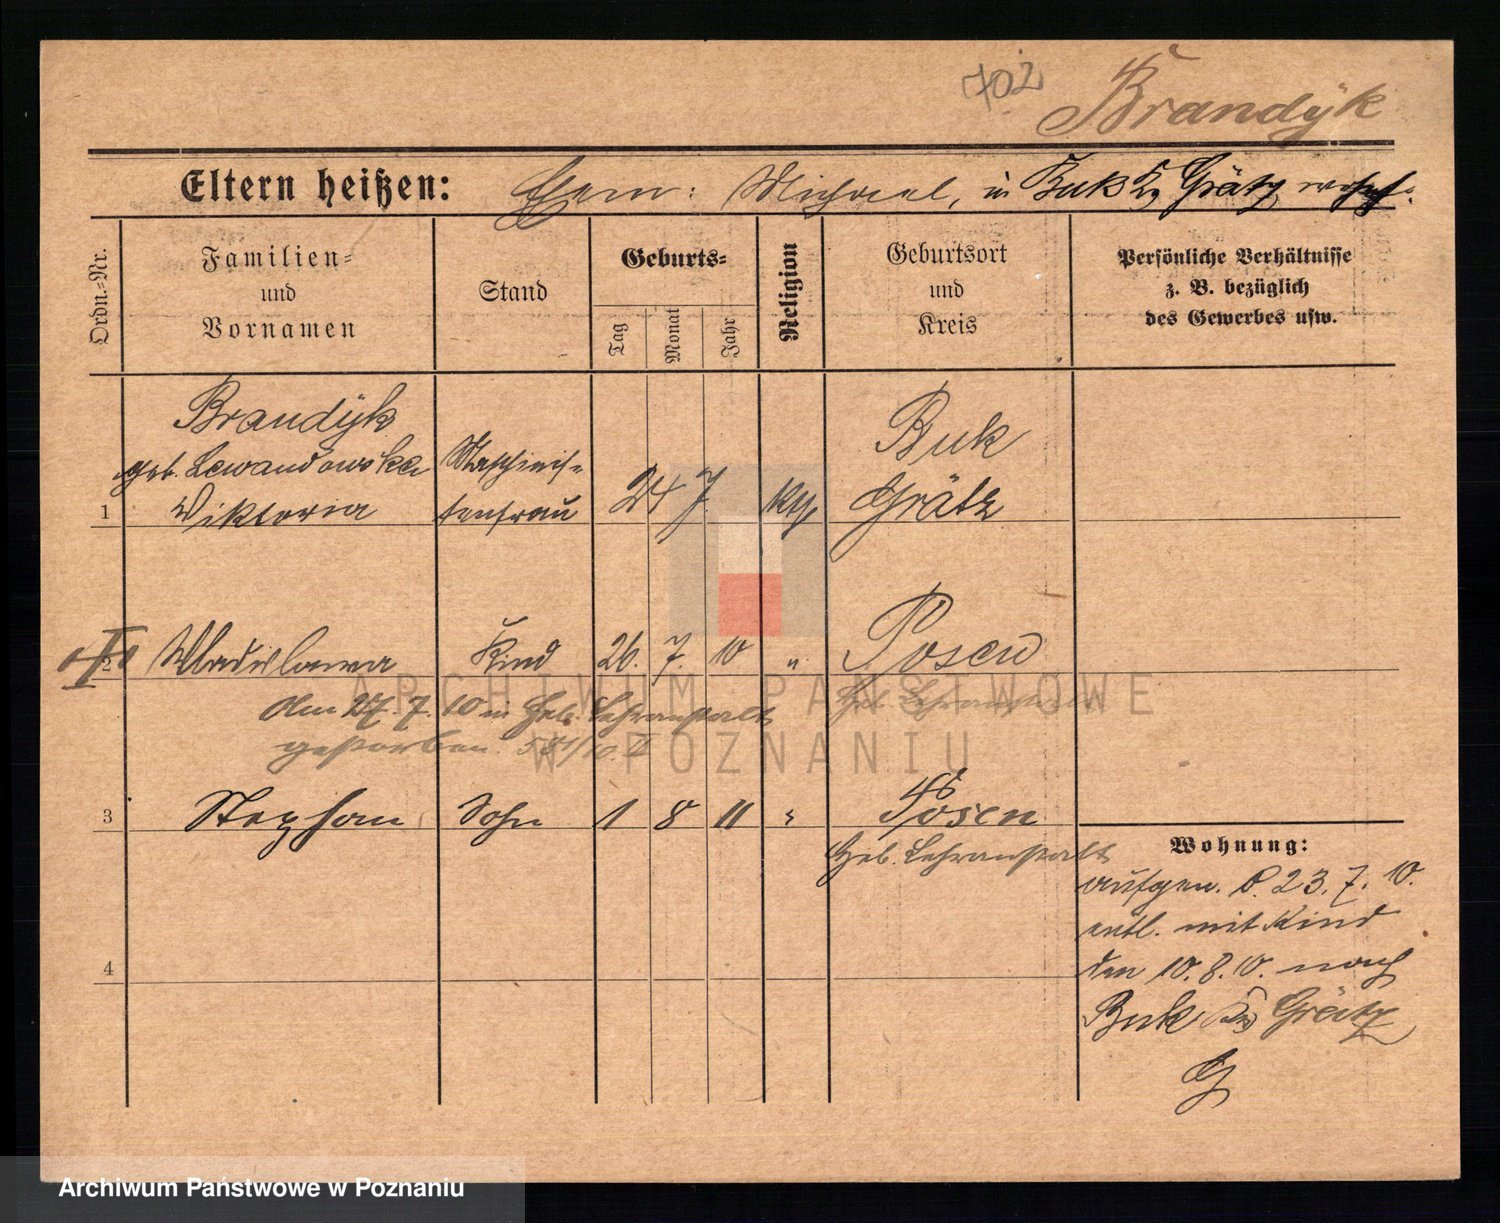 702 Brandÿk
Eltern heißen: Ehem: Michael, in Buk Kr Grätz wohnh.
Ordn.-Nr.
Familien-
und
Vornamen
Stand
Geburts-
Tag
Monat
Jahr
Religion
Geburtsort
und
Kreis
Persönliche Verhältnisse
z. B. bezüglich
des Gewerbes usw.
Brandÿk
geb. Lewandowska
Viktoria
Maschinis-
tenfrau
1
24 7.
kth.
Buk
Grätz
2
Wladislawa
Kind
26. 7. 10
"
Posen
Heb. Lehranstalt
den 27. 7. 10 in Heb. Lehranstalt
gestorben.
3
Stephan
Sohn
1 8 11
"
Posen
Heb. Lehranstalt
4
Wohnung:
aufgen. d. 23. 7. 10.
entl. mit Kind
den 10. 8. 10. nach
Buk Kr Grätz
G
ARCHIWUM PAŃSTWOWE
W POZNANIU
Archiwum Państwowe w Poznaniu